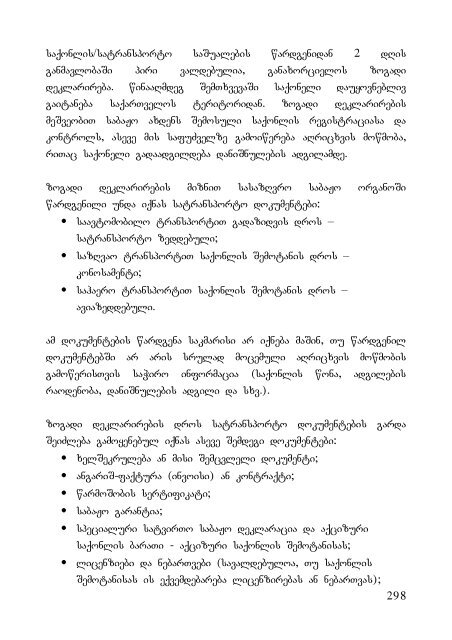 საქონლის/სატრანსპორტო საშუალების წარდგენიდან 2 დღის
განმავლობაში პირი ვალდებულია, განახორციელოს ზოგადი
დეკლარირება. წინააღმდეგ შემთხვევაში საქონელი დაუყოვნებლივ
გაიტანება საქართველოს ტერიტორიდან. ზოგადი დეკლარირების
მეშვეობით საბაჟო ახდენს შემოსული საქონლის რეგისტრაციასა და
კონტროლს, ასევე მის საფუძველზე გამოიწერება აღრიცხვის მოწმობა,
რითაც საქონელი გადაადგილდება დანიშნულების ადგილამდე.
ზოგადი დეკლარირების მიზნით სასაზღვრო საბაჟო ორგანოში
წარდგენილი უნდა იქნას სატრანსპორტო დოკუმენტები:
• საავტომობილო ტრანსპორტით გადაზიდვის დროს –
სატრანსპორტო ზედდებული;
• საზღვაო ტრანსპორტით საქონლის შემოტანის დროს –
კონოსამენტი;
• საჰაერო ტრანსპორტით საქონლის შემოტანის დროს –
ავიაზედდებული.
ამ დოკუმენტების წარდგენა საკმარისი არ იქნება მაშინ, თუ წარდგენილ
დოკუმენტებში არ არის სრულად მოცემული აღრიცხვის მოწმობის
გამოწერისთვის საჭირო ინფორმაცია (საქონლის წონა, ადგილების
რაოდენობა, დანიშნულების ადგილი და სხვ.).
ზოგადი დეკლარირების დროს სატრანსპორტო დოკუმენტების გარდა
შეიძლება გამოყენებულ იქნას ასევე შემდეგი დოკუმენტები:
• ხელშეკრულება ან მისი შემცვლელი დოკუმენტი;
• ანგარიშ-ფაქტურა (ინვოისი) ან კონტრაქტი;
• წარმოშობის სერტიფიკატი;
• საბაჟო გარანტია;
• სპეციალური სატვირთო საბაჟო დეკლარაცია და აქციზური
საქონლის ბარათი - აქციზური საქონლის შემოტანისას;
• ლიცენზიები და ნებართვები (სავალდებულოა, თუ საქონლის
შემოტანისას ის ექვემდებარება ლიცენზირებას ან ნებართვას);
298